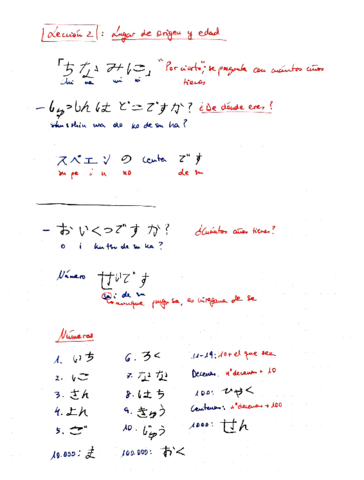 Lección 2: Lugar de origen y edad
「ちなみに」 "Por cierto"; se pregunta con cuántos años tienes
chi na mi ni
- しゅっしんは どこですか? ¿De dónde eres?
shusshin wa do ko de su ka?
スペエン の centa です
su pe i n no de su
- おいくつですか? ¿Cuántos años tienes?
o i kutsu de su ka?
Número せいです
sai de su
aunque ponga se, es
Números
1. いち 6. ろく 11-19: 10 + el que sea
2. に 7. なな Decenas: nº decena + 10
3. さん 8. はち 100: ひゃく
4. よん 9. きゅう Centenas: nº decenas + 100
5. ご 10. じゅう 1000: せん
10.000: ま 100.000: おく